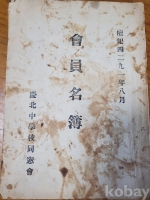 檀紀四二九一年八月
會員名簿
慶北中學校同窓會
kobay